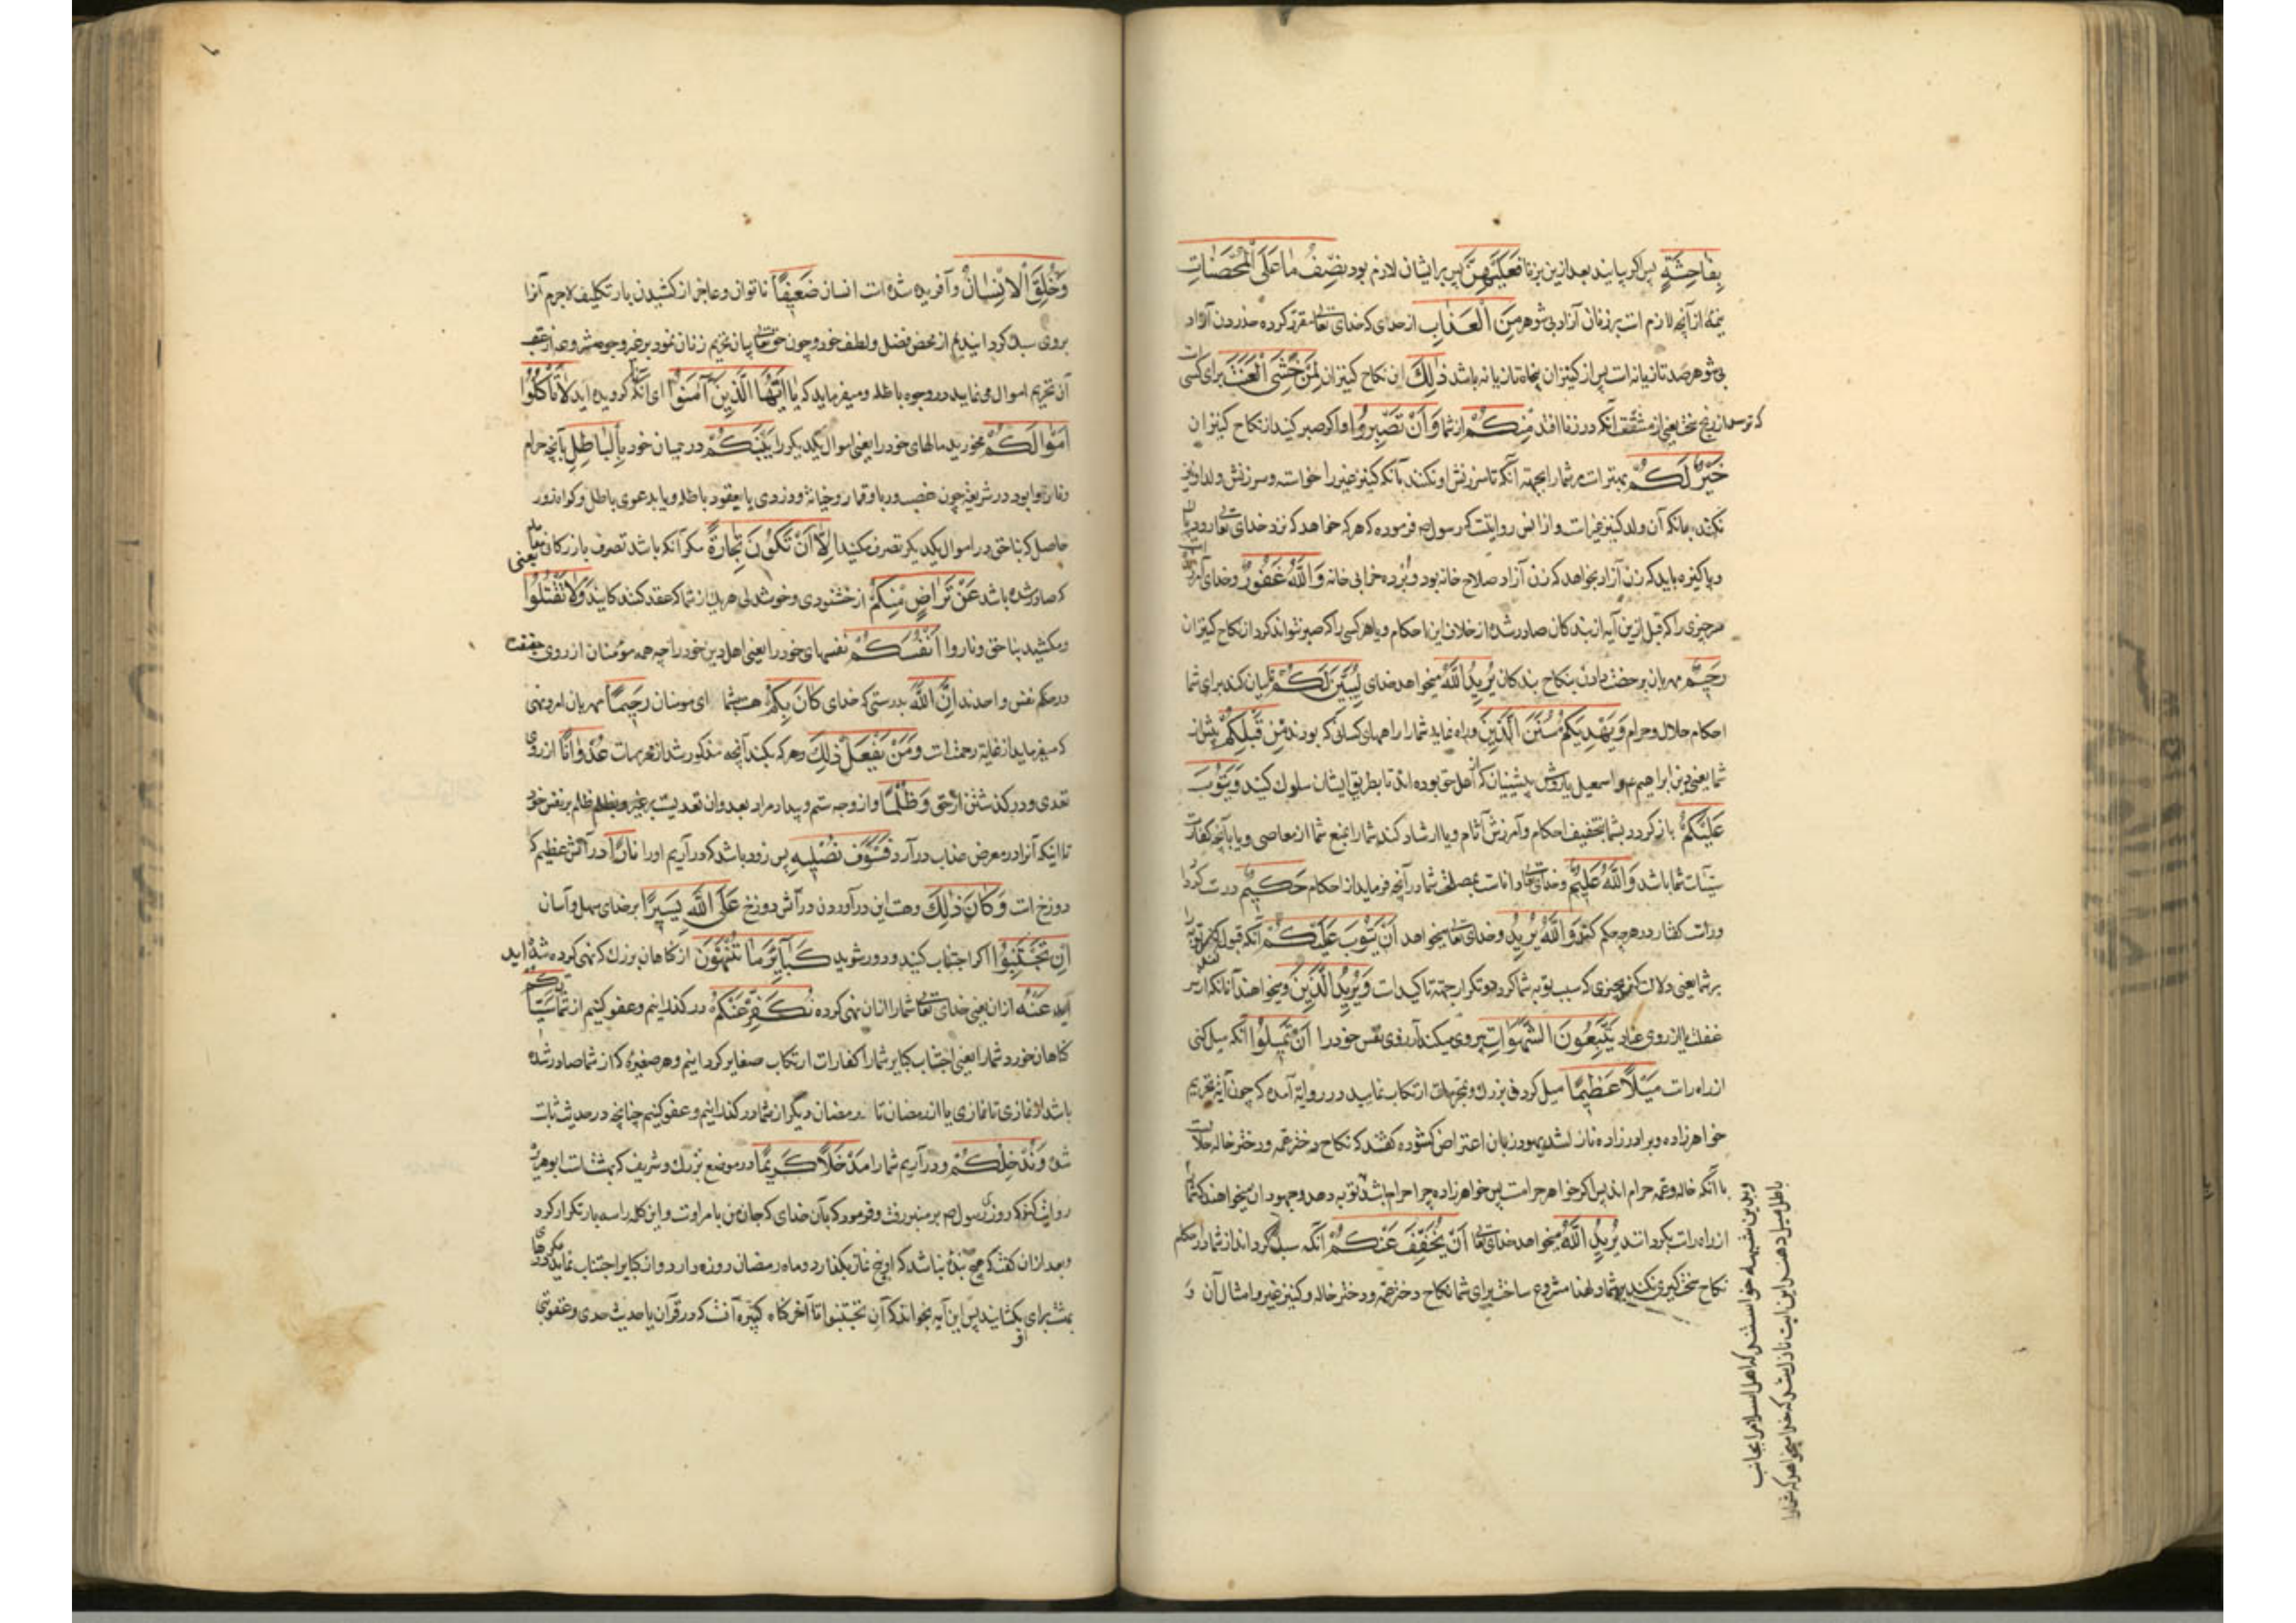 بِفَاحِشَةٍ پس اگر بیایند بعد ازین بزنا فَعَلَيْهِنَّ پس برایشان لازم بود نِصْفُ مَا عَلَى الْمُحْصَنَاتِ
نیمهٔ از آنچه لازم است بر زنان آزاد بی شوهر مِنَ الْعَذَابِ از حدی که خدای تعالی مقرر کرده
بی شوهر صد تازیانه است پس از کنیزان پنجاه تازیانه باشد ذٰلِكَ این نکاح کنیزان لِمَنْ خَشِيَ الْعَنَتَ برای کسی است
که ترسد از رنج یعنی از مشقت آنکه در زنا افتد مِنْكُمْ از شما وَاَنْ تَصْبِرُوا و اگر صبر کنید از نکاح کنیزان
خَيْرٌ لَكُمْ بهتر است مر شما را بجهة آنکه تا سرزنش او نکنند بآنکه کنیز غیر را خواسته و سرزنش ولد او نیز
نکنند بانکه آن ولد کنیز غیر است و از انس روایتست که رسول م فرموده که هر که خواهد که نزد خدای تعالی رود
و پاکیزه باید که زن آزاد بخواهد که زن آزاد صلاح خانه بود و برده خرابی خانه وَاللّٰهُ غَفُورٌ و خدای
هر چیزی را که قبل ازین آیه از بندکان صادر شده از خلاف این احکام و یا هر کسی را که صبر نتواند کرد از نکاح کنیزان
رَحِيمٌ مهربان بر خصت دادن بنکاح بندکان يُرِيدُ اللّٰهُ میخواهد خدای لِيُبَيِّنَ لَكُمْ تا بیان کند برای شما
احکام حلال و حرام وَيَهْدِيَكُمْ سُنَنَ الَّذِينَ و راه نماید شما را راههای کسانی که بودند مِنْ قَبْلِكُمْ پیش از
شما یعنی دین ابراهیم و اسمعیل یا روش پیشینیان که اهل حق بوده اند تا بطریق ایشان سلوك کنید وَيَتُوبَ
عَلَيْكُمْ باز کردد بشما بتخفیف احکام و آمرزش آثام و یا ارشاد کند شما را بمنع شما از معاصی و یا بآنچه کفارت
سیئات شما باشد وَاللّٰهُ عَلِيمٌ و خدای تعالی داناست بمصلحت شما در آنچه فرماید از احکام حَكِيمٌ درست کردار
و راست کفتار در هر چه حکم کند وَاللّٰهُ يُرِيدُ و خدای تعالی میخواهد اَنْ يَتُوبَ عَلَيْكُمْ آنکه قبول کند توبه را
بر شما یعنی دلالت کند بچیزی که سبب توبه شما کردد و تکرار جهة تاکید است وَيُرِيدُ الَّذِينَ و میخواهند آنانکه از سر
غفلت یا از روی عناد يَتَّبِعُونَ الشَّهَوَاتِ پیروی میکند آرزوی نفس خود را اَنْ تَمِيلُوا آنکه میل کنی
از راه راست مَيْلًا عَظِيمًا میل کردنی بزرك و بمحرمات ارتکاب نمایید و در روایة آمده که چون آیه تحریم
خواهرزاده و برادرزاده نازل شد یهود زبان اعتراض کشوده کفتند که نکاح دختر عمه و دختر خاله حلالست
با آنکه خاله و عمه حرام اند پس اکر خواهر حرامست پس خواهرزاده چرا حرام باشد
از راه راست بکردانند يُرِيدُ اللّٰهُ میخواهد خدای تعالی اَنْ يُخَفِّفَ عَنْكُمْ آنکه سبك کرداند از شما در احکام
نکاح سخت کیری نکند بر شما و لهذا مشروع ساخت برای شما نکاح دختر عمه و دختر خاله و کنیز غیر و امثال آن وَ
و بدین شبهه خواستند که اهل اسلام را بجانب
باطل میل دهند این ایت نازل شد که خدا میخواهد که شما را
وَخُلِقَ الْاِنْسَانُ و آفریده شده است انسان ضَعِيفًا ناتوان و عاجز از کشیدن بار تکلیف لاجرم آنرا
بروی سبك کردانیدیم از محض فضل و لطف خود و چون حق تعالی بیان تحریم زنان نمود بر غیر وجوه مشروعه از عقب
آن تحریم اموال می نماید در وجوه باطله و میفرماید که يَا اَيُّهَا الَّذِينَ آمَنُوا ای آنکه کرویده اید لَا تَأْكُلُوا
اَمْوَالَكُمْ مخورید مالهای خود را یعنی اموال یکدیکر را بَيْنَكُمْ در میان خود بِالْبَاطِلِ بآنچه حرام
و ناروا بود در شریعة چون غصب و ربا و قمار و خیانة و دزدی یا بعقود باطله و یا بدعوی باطل و کواه زور
حاصل که بناحق در اموال یکدیکر تصرف مکنید اِلَّا اَنْ تَكُونَ تِجَارَةً مکر آنکه باشد تصرف بازرکانی یعنی
که صادر شده باشد عَنْ تَرَاضٍ مِنْكُمْ از خشنودی و خوشدلی هر یك از شما که عقد کنندکانید وَلَا تَقْتُلُوا
و مکشید بناحق و ناروا اَنْفُسَكُمْ نفسهای خود را یعنی اهل دین خود را چه همه مؤمنان از روی حقیقت
در حکم نفس واحدند اِنَّ اللّٰهَ بدرستی که خدای كَانَ بِكُمْ هست بشما ای مومنان رَحِيمًا مهربان امر و نهی
که میفرماید از غایة رحمتست وَمَنْ يَفْعَلْ ذٰلِكَ و هر که بکند آنچه مذکور شد از محرمات عُدْوَانًا از روی
تعدی و درکذشتن از حق وَظُلْمًا و از وجه ستم و بیداد مراد بعدوان تعدیست بر غیر و بظلم ظلم بر نفس خود
تا اینکه آنرا در معرض عذاب درآرد فَسَوْفَ نُصْلِيهِ پس زود باشد که درآریم او را نَارًا در آتش عظیم که
دوزخ است وَكَانَ ذٰلِكَ و هست این درآوردن در آتش دوزخ عَلَى اللّٰهِ يَسِيرًا بر خدای سهل و آسان
اِنْ تَجْتَنِبُوا اکر اجتناب کنید و دور شوید كَبَائِرَ مَا تُنْهَوْنَ از کناهان بزرك که نهی کرده شده اید
عَنْهُ از ان یعنی خدای تعالی شما را از ان نهی کرده نُكَفِّرْ عَنْكُمْ درکذرانیم و عفو کنیم از شما سَيِّئَاتِكُمْ
کناهان خورد شما را یعنی اجتناب کبایر شما را کفارات ارتکاب صغایر کردانیم و هر صغیره که از شما صادر شده
باشد از نمازی تا نمازی یا از رمضان تا رمضان دیگر از شما درکذرانیم و عفو کنیم چنانچه در حدیث ثابت
شده وَنُدْخِلْكُمْ و درآریم شما را مَدْخَلًا كَرِيمًا در موضع بزرك و شریف که بهشتست ابوهریره
روایت کند که روزی رسول م بر منبر رفت و فرمود که بآن خدای که جان من بامر اوست و این کلمه را سه بار تکرار کرد
و بعد از ان کفت که هیچ بنده نباشد که او پنج نماز بکذارد و ماه رمضان روزه دارد و از کبایر اجتناب نماید مکر درهای
بهشت برای او بکشایند پس این آیه بخواند که اِنْ تَجْتَنِبُوا تا آخر کناه کبیره آنست که در قرآن یا حدیث حدی و عقوبتی